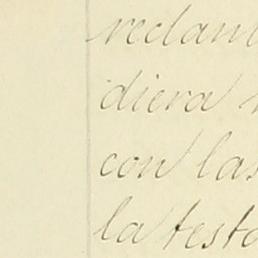 reclam
diera
con las
la testa